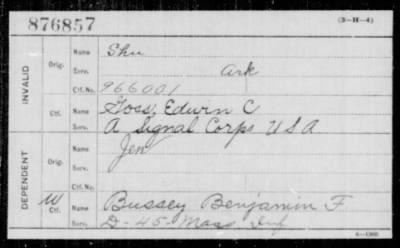 876857 (3-H-4)
INVALID
Orig.
Name Shu
Serv. Ark
Ctf. No. 966001
Ctf.
Name Goss, Edwin C
Serv. A Signal Corps U S A
DEPENDENT
Orig.
Name Jen
Serv.
Ctf. No.
W Ctf.
Name Bussey Benjamin F
Serv. D-45-Mass Inf